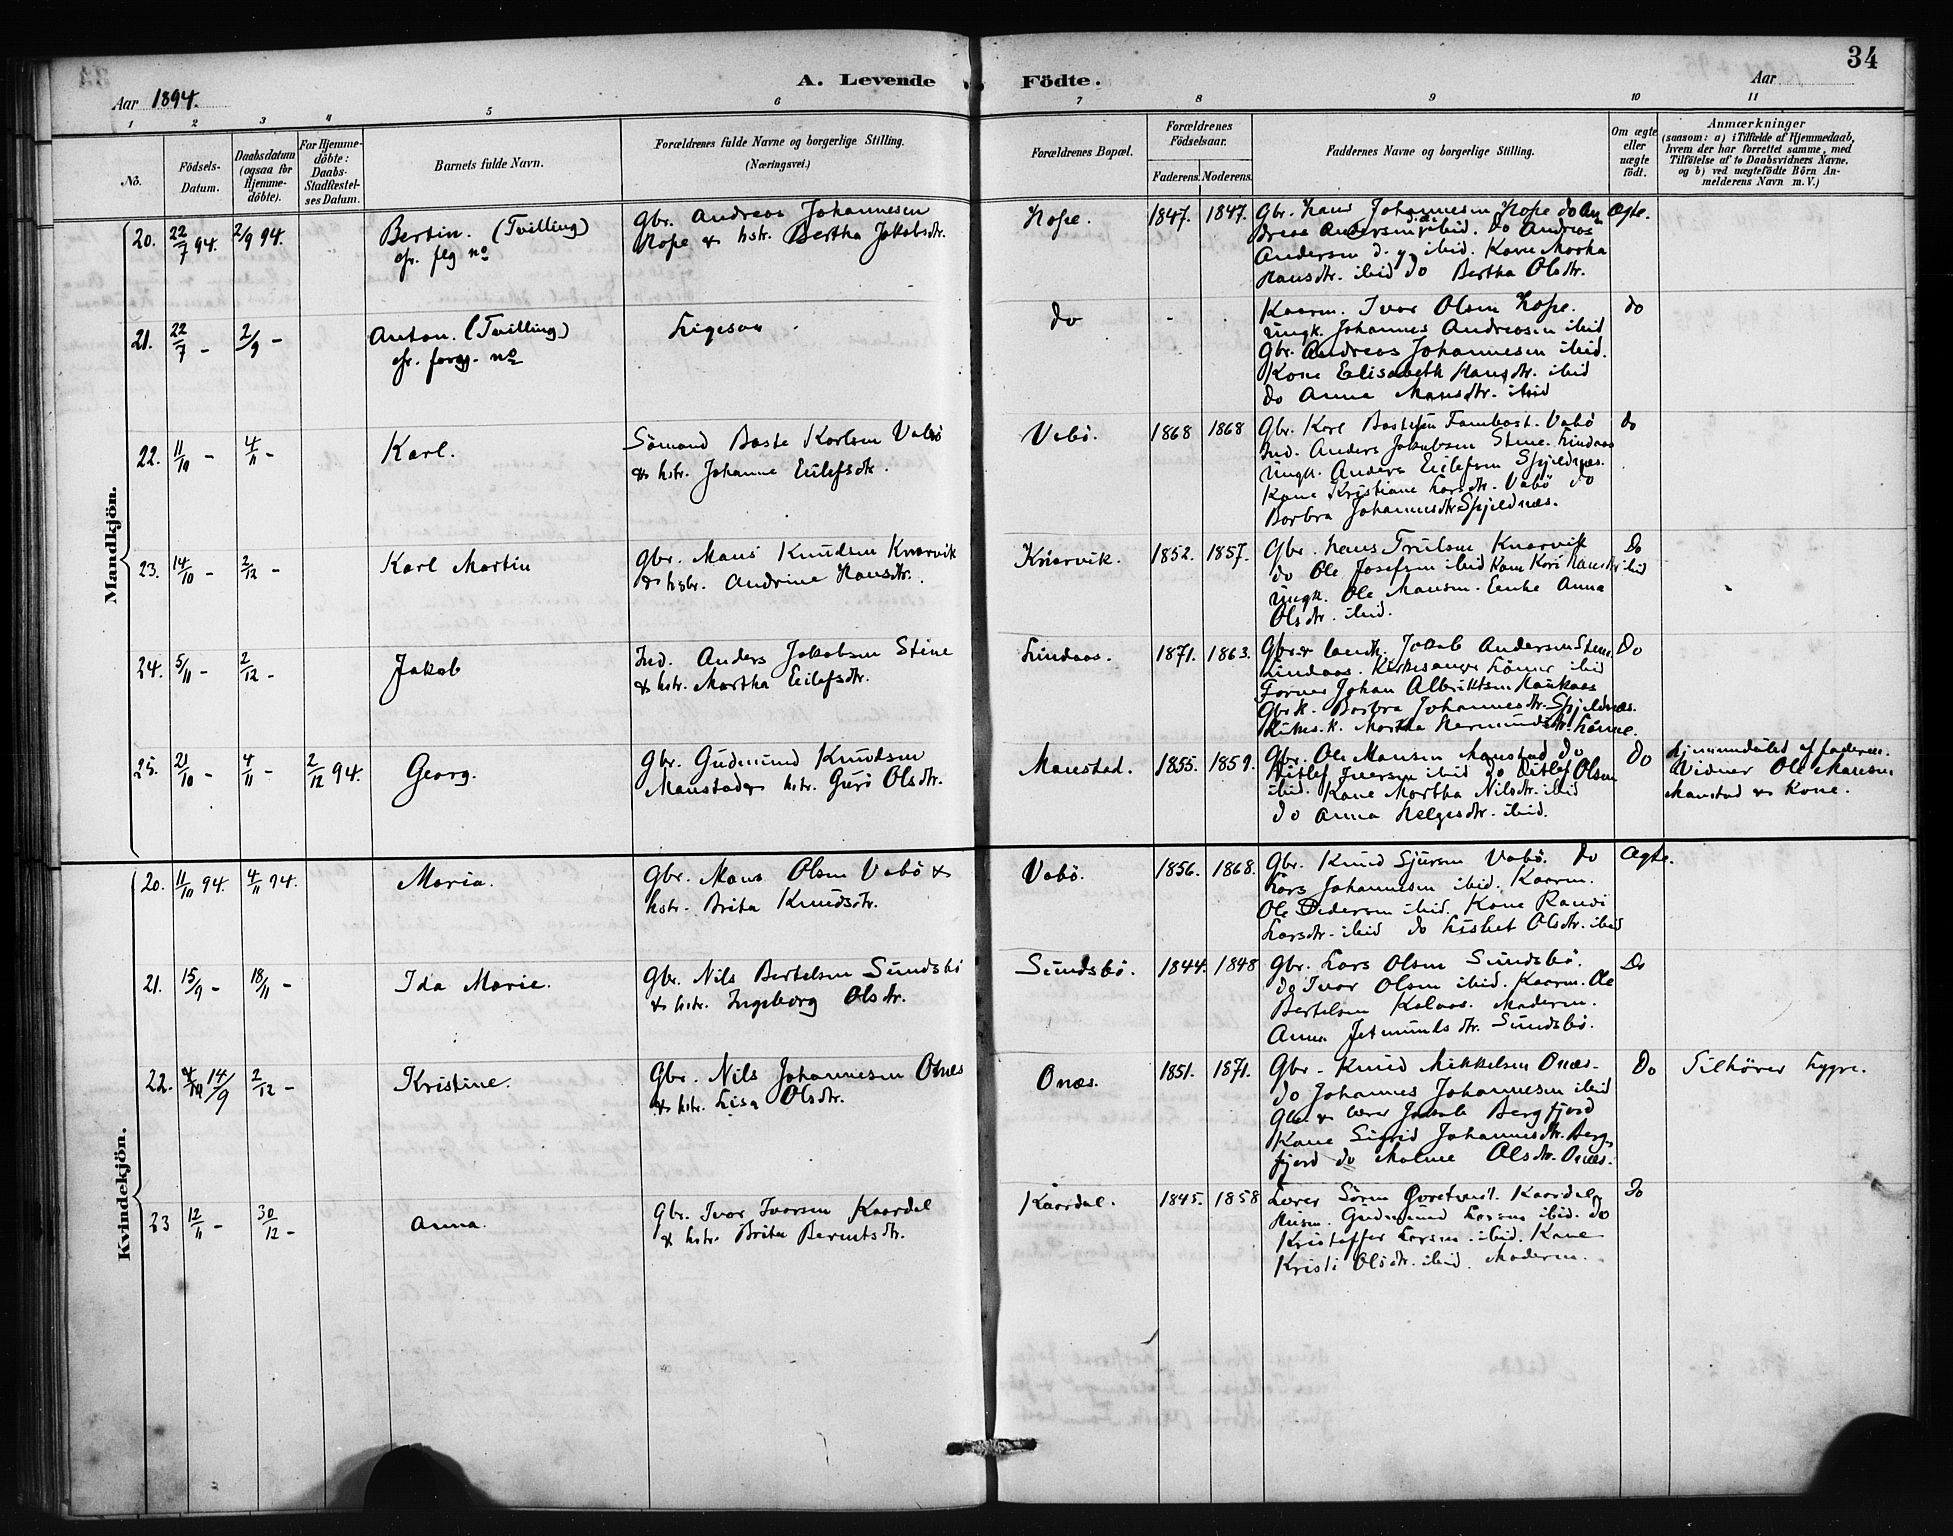 34
A. Levende Födte.
Aar 1894.
Aar
1 2 3 4 5 6 7 8 9 10 11
No.
Födsels-Datum.
Daabsdatum (ogsaa for Hjemme-döbte).
For Hjemme-döbte: Daabs-Stadfæstel-ses Datum.
Barnets fulde Navn.
Forældrenes fulde Navne og borgerlige Stilling.
(Næringsvei.)
Forældrenes Bopæl.
Forældrenes Födselsaar.
Faderens. Moderens.
Faddernes Navne og borgerlige Stilling.
Om ægte eller uægte födt.
Anmærkninger
(saasom: a) i Tilfælde af Hjemmedaab, hvem der har forrettet samme, med Tilföielse af to Daabsvidners Navne. og b) ved uægtefödte Börn An-melderens Navn m. V.)
Mandkjön.
20. 22/7 94. 2/9 94.
Bertin. (Tvilling)
cfr. flg no
Gbr. Andreas Johannesen
Hope & hstr. Bertha Jakobsdtr.
Hope.
1847. 1847.
Gbr. Hans Johannesen Hope do An
dreas Andersen ibid. do Andreas
Andersen d. y. ibid. Kone Martha
Hansdtr. ibid do Bertha Olsdtr.
Ægte.
21. 22/7 - 2/9 -
Anton. (Tvilling)
cfr. forrg. no
Ligesaa
do
- .
Kaarm. Ivar Olsen Hope.
Ungk. Johannes Andreasen ibid
Gbr. Andreas Johannesen ibid.
Kone Elisabeth Hansdtr. ibid
do Anna Mansdtr. ibid
do
22. 11/10 - 4/11 -
Karl.
Sömand Baste Karlsen Vabö
& hstr. Johanne Eilefsdtr.
Vabö.
1868 1868
Gbr. Karl Bastesen Fambost. Vabö
Ind. Anders Jakobsen Stene. Lindaas
Ungk. Anders Eilefsen Spjeldnæs.
Kone Kristiane Larsdtr. Vabö do
Barbra Johannesdtr Spjeldnæs.
do
23. 14/10 - 2/12 -
Karl Martin
Gbr. Mans Knudsen Knarvik
& hstr. Andrine Hansdtr.
Knarvik.
1852. 1857.
Gbr. Hans Trulsen Knarvik
do Ole Josefsen ibid Kone Kari Hansdtr ibid
Ungk. Ole Mansen. Enke Anna
Olsdtr. ibid.
Do
24. 5/11 - 2/12 -
Jakob
Ind. Anders Jakobsen Stene
& hstr. Martha Eilefsdtr.
Lindaas.
1871. 1863.
Gbr. & landh. Jakob Andersen Stene
Lindaas. Kirkesanger Lönne ibid
Forner Johan Albriktsen Haukaas
Gbr k. Barbra Johannesdtr. Spjeldnæs.
Kirkes. k. Martha Hermundsdtr Lönne.
Do
25. 21/10 - 4/11 - 2/12 94.
Georg.
Gbr. Gudmund Knudsen
Manstad & hstr. Guri Olsdtr.
Manstad.
1855. 1859.
Gbr. Ole Mansen Manstad do
Ditlef Iversen ibid do Ditlef Olsen
ibid. Kone Martha Nilsdtr. ibid
do Anna Helgesdtr. ibid.
Do
hjemmedöbt af faderen.
Vidner Ole Mansen
Manstad & Kone.
Kvindekjön.
20. 11/10 94. 4/11 94.
Maria.
Gbr. Mans Olsen Vabö &
hstr. Brita Knudsdtr.
Vabö.
1856. 1868.
Gbr. Knud Sjursen Vabö. do
Lars Johannesen ibid. Kaarm.
Ole Pedersen ibid. Kone Randi
Larsdtr. ibid do Lisbet Olsdtr. ibid
Ægte.
21. 15/9 - 18/11 -
Ida Marie.
Gbr. Nils Bertelsen Sundsbö
& hstr. Ingeborg Olsdtr.
Sundsbö.
1844. 1848
Gbr. Lars Olsen Sundsbö.
do Ivar Olsen ibid. Kaarm. Ole
Bertelsen Kolaas. Moderen.
Anna Jetmundsdtr. Sundsbö.
Do
22. 14/9 2/12 -
Kristine.
Gbr. Nils Johannesen Onæs
& hstr. Lisa Olsdtr.
Onæs.
1851. 1871.
Gbr. Knud Mikkelsen Onæs.
do Johannes Johannesen ibid
Gbr. & lærer Jakob Bergfjord
Kone Sigrid Johannesdtr. Berg-
fjord do Malene Olsdtr. Onæs.
Do
Tilhörer Lygre.
23 12/11 - 30/12 -
Anna.
Gbr. Ivar Ivarsen Kaardal
& hstr. Brita Berntsdtr.
Kaardal.
1845. 1858
Lærer Sören Kaardal
Husm. Gudmund Larsen ibid. do
Kristoffer Larsen ibid. Kone
Kristi Olsdtr. ibid. Moderen.
Do